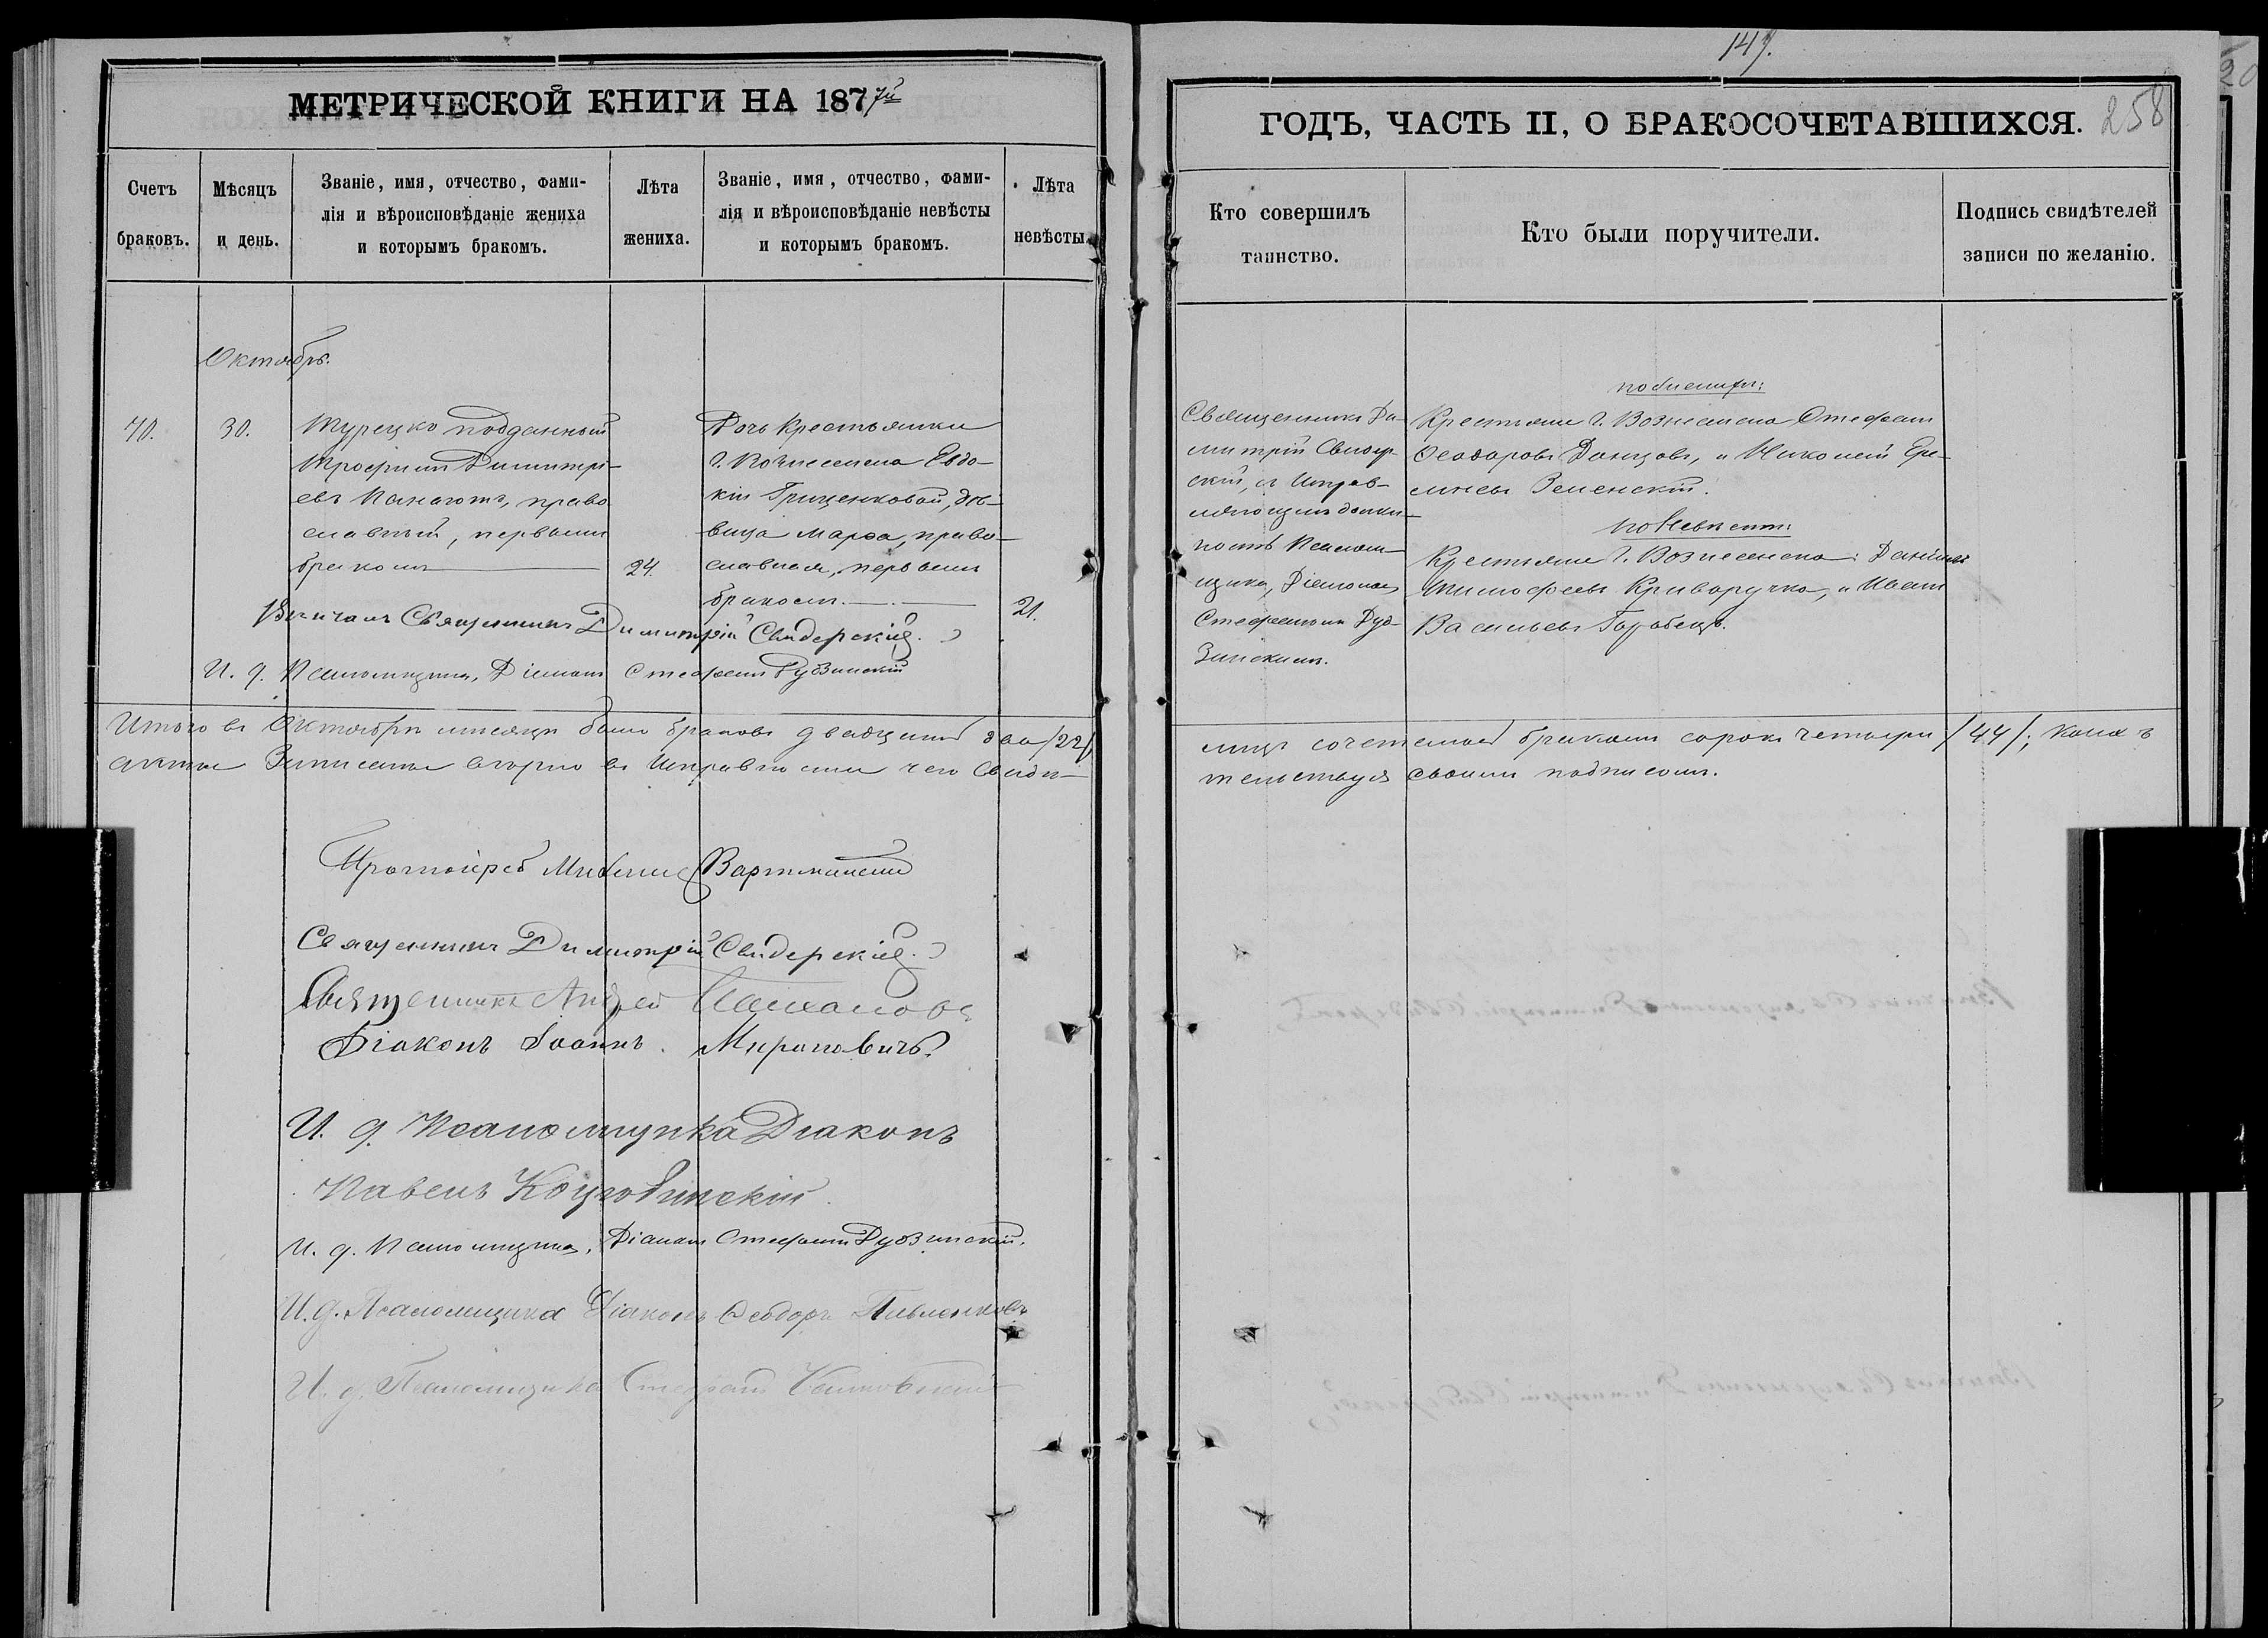 147.
МЕТРИЧЕСКОЙ КНИГИ НА 1877й
ГОДЪ, ЧАСТЬ II, О БРАКОСОЧЕТАВШИХСЯ.
258
20
Счетъ
браковъ.
Мѣсяцъ
и день.
Званіе, имя, отчество, фами-
лія и вѣроисповѣданіе жениха
и которымъ бракомъ.
Лѣта
жениха.
Званіе, имя, отчество, фами-
лія и вѣроисповѣданіе невѣсты
и которымъ бракомъ.
Лѣта
невѣсты.
Кто совершилъ
таинство.
Кто были поручители.
Подпись свидѣтелей
записи по желанію.
Октябрь.
70.
30.
Турецко подданный
Трофимъ Димитрі-
евъ Панаіотъ, право
славный, первымъ
бракомъ
24.
Дочь Крестьянки
г. Вознесенска Евдо-
кіи Гриценковой, дѣ-
вица Марѳа, право-
славная, первымъ
бракомъ.
21.
Священникъ Ди-
митрій Свидер-
скій, съ Исправ-
ляющимъ долж-
ность Псалом-
щика, Діакономъ
Стефаномъ Руд-
зинскимъ.
по женихѣ:
Крестьяне г. Вознесенска Стефанъ
Ѳеодоровъ Донцовъ, и Николай Ере-
мѣевъ Зеленскій.
по Невѣстѣ:
Крестьяне г. Вознесенска: Даніилъ
Тимофеевъ Криворучко, и Иванъ
Васильевъ Горобецъ.
Вѣнчалъ Священникъ Димитрій Свидерскій.
И. д. Псаломщика, Діаконъ Стефанъ Рудзинскій
Итого въ Октябрѣ мѣсяцѣ было браковъ двадцать два /22/
лицъ сочетаныхъ бракомъ сорокъ четыри /44/; каковъ
актъ Записанъ вѣрно въ Исправности чего Свидѣ-
тельствуя своимъ подписомъ.
Протоіерей
Священникъ Димитрій Свидерскій.
Священникъ Андрей
Діаконъ Іоаннъ Мироновичъ.
И. д. Псаломщика Діаконъ
Павелъ
И. д. Псаломщика, Діаконъ Стефанъ Рудзинскій.
И. д. Псаломщика Діаконъ Ѳеодоръ Павленковъ
И. д. Псаломщика Стефанъ